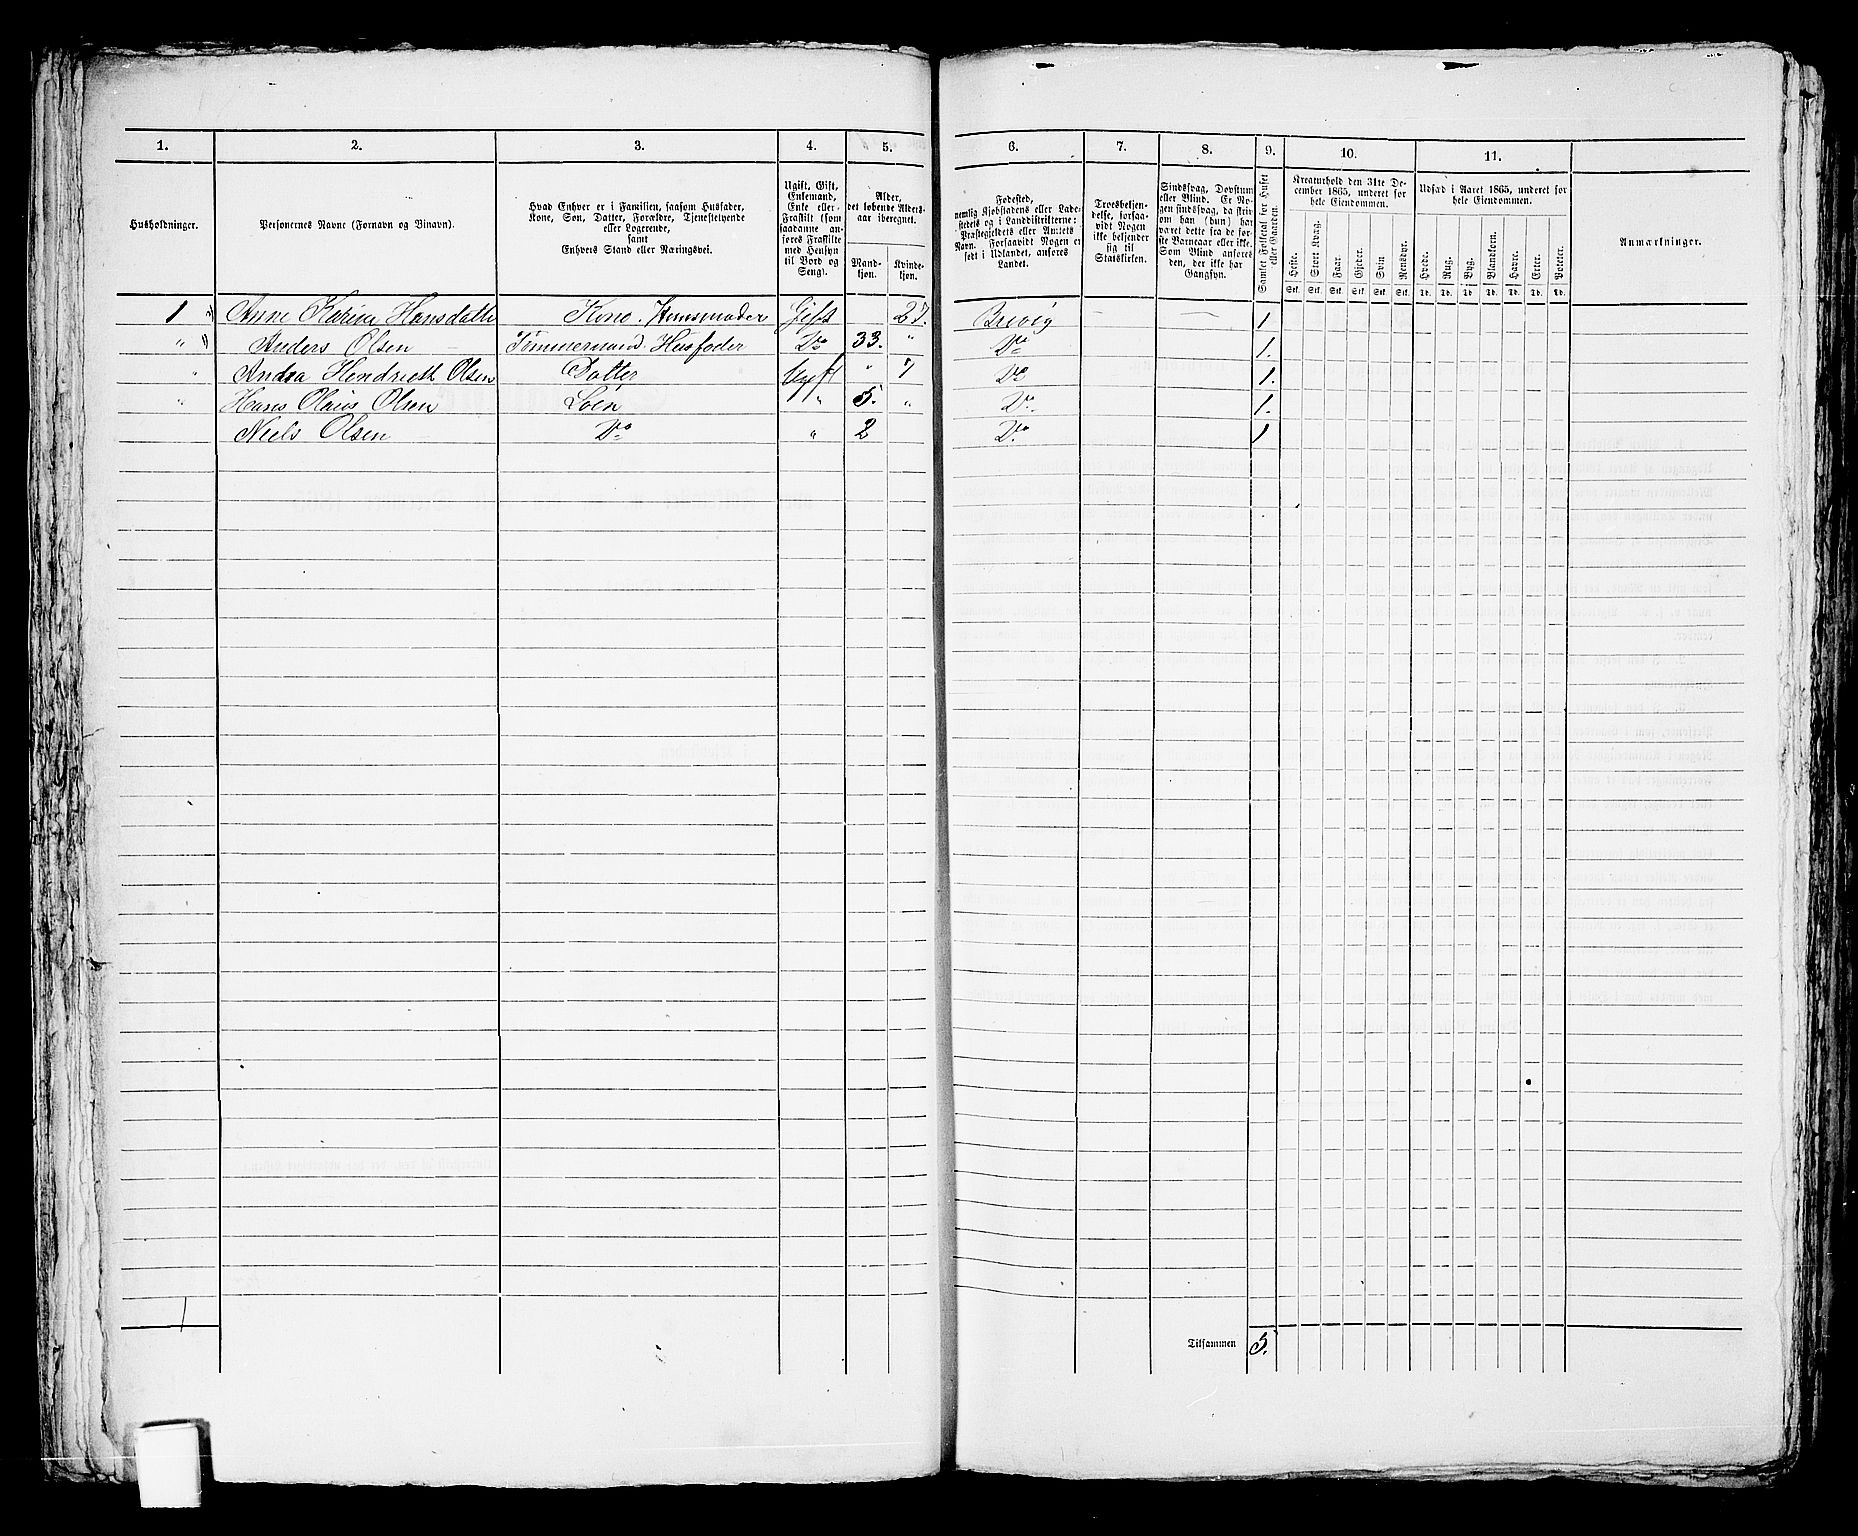 1. 2. 3. 4. 5. 6. 7. 8. 9. 10. 11.
Husholdninger.
Personernes Navne (Fornavn og Binavn).
Hvad Enhver er i Familien, saasom Husfader,
Kone, Søn, Datter, Forældre, Tjenestetyende
eller Logerende,
samt
Enhvers Stand eller Næringsvei.
Ugift, Gift,
Enkemand,
Enke eller
Fraskilt (som
saadanne an-
føres Fraskilte
med Hensyn
til Bord og
Seng).
Alder,
det løbende Alders-
aar iberegnet.
Mand-
kjøn.
Kvinde-
kjøn.
Fødested,
nemlig Kjøbstadens eller Lade-
stedets og i Landdistrikterne:
Præstegjeldets eller Amtets
Navn. Forsaavidt Nogen er
født i Udlandet, anføres
Landet.
Troesbekjen-
delse, forsaa-
vidt Nogen
ikke bekjender
sig til
Statskirken.
Sindssvag, Døvstum
eller Blind. Er No-
gen sindssvag, da skri-
ves om han (hun) har
været dette fra de før-
ste Barneaar eller ikke.
Som Blind anføres
den, der ikke har
Gangsyn.
Samlet Folketal for Huset
eller Gaarden.
Kreaturhold den 31te De-
cember 1865, underet for
hele Eiendommen.
Heste. Stort Kvæg. Faar. Gjeder. Svin Rensdyr.
Stk. Stk. Stk. Stk. Stk. Stk.
Udsæd i Aaret 1865, underet for
hele Eiendommen.
Hvede. Rug. Byg. Blandkorn. Havre. Erter. Poteter.
Td. Td. Td. Td. Td. Td. Td.
Anmærkninger.
1 " Anne Karine Hansdatte Kone. Huusmoder Gift 27. Brevig 1
" " Anders Olsen Tømmermand. Husfader Do 33. " Do 1.
" Andra Hendriett Olsen Datter Ugift " 7 Do 1.
" Hans Olaus Olsen Søn " 5. " Do. 1.
Niels Olsen Do " 2 Do. 1
1
Tilsammen 5.